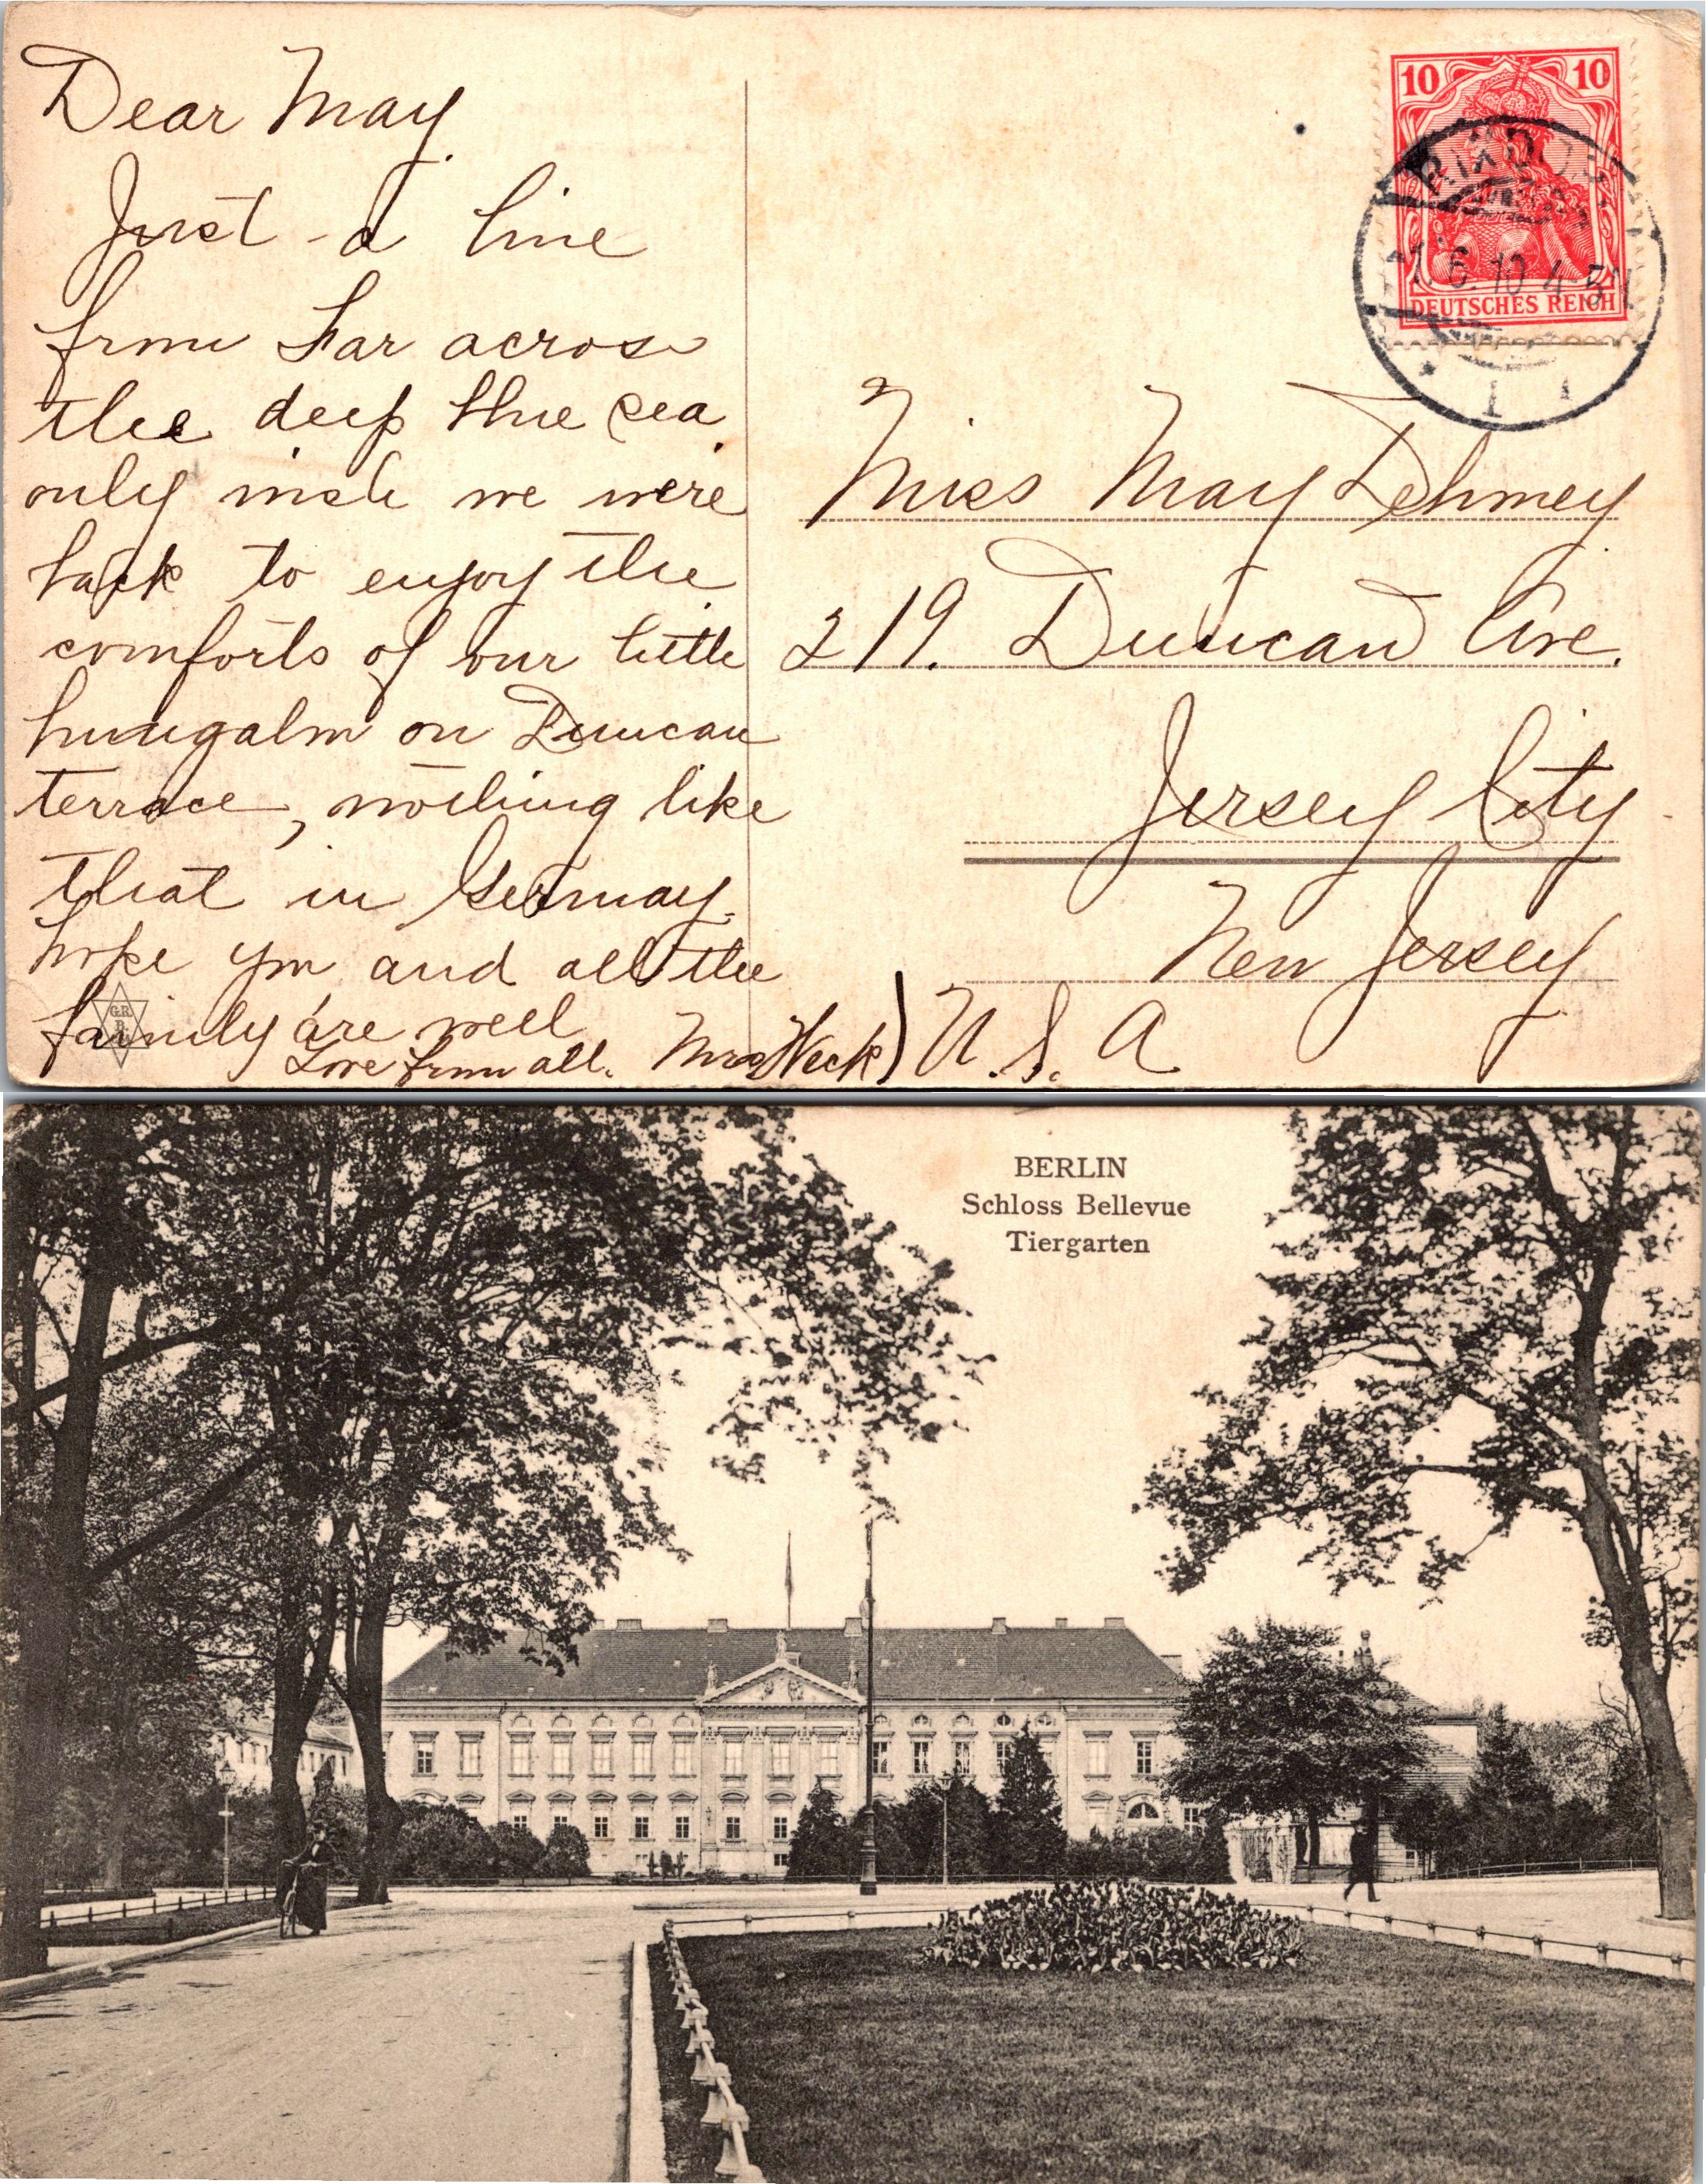 Dear May.
Just a line
from far across
the deep blue sea.
only wish we were
back to enjoy the
comforts of our little
bungalow on Duncan
terrace, nothing like
that in Germany.
hope you and all the
family are well
Love from all. Mrs Heck)
10 10
DEUTSCHES REICH
RIXDORF
-1.6.10.4-5N
* 1 1
Miss May Dehmey
219. Duncan Ave.
Jersey City
New Jersey
U.S.A
BERLIN
Schloss Bellevue
Tiergarten